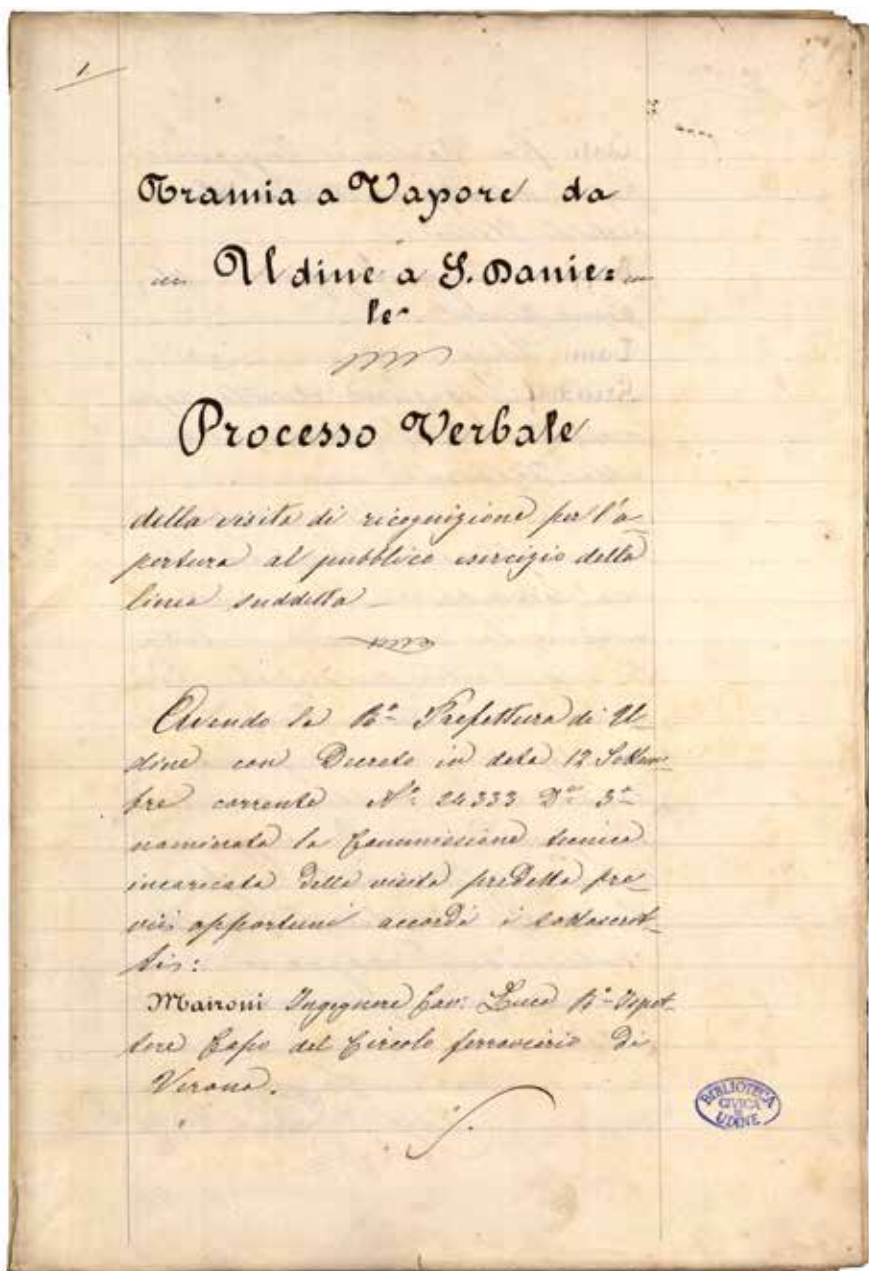 1
Tramia a Vapore da
Udine a S. Danie=
le
Processo Verbale
della visita di ricognizione per l'a_
pertura al pubblico esercizio della
linea suddetta_
Avendo la Ra. Prefettura di U_
dine con Decreto in data 12 Settem_
bre corrente No. 24333 Do. 3a
nominata la Commissione tecnica
incaricata della visita predetta pre_
vii opportuni accordi i sottoscrit_
ti:
Maironi Ingegnere Cav: Luca Ro. Ispet_
tore Capo del Circolo ferroviario di
Verona.
BIBLIOTECA
CIVICA
UDINE